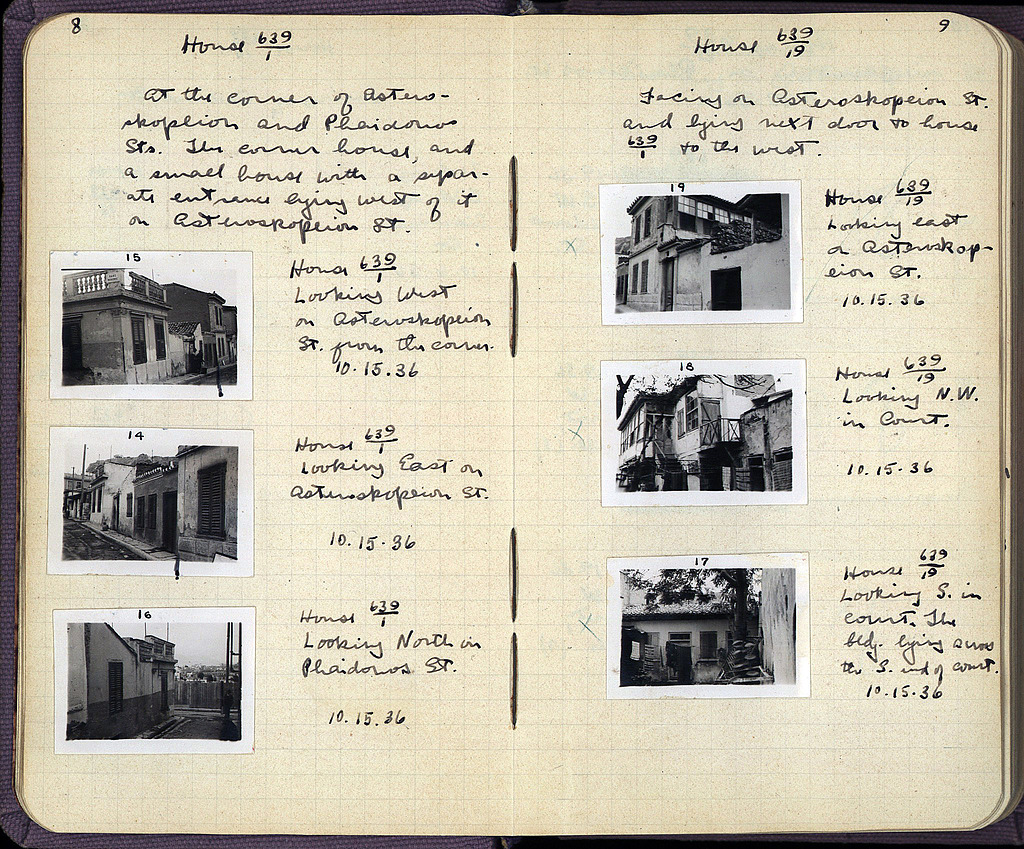 8
House 639/1
At the corner of Astero-
skopeion and Phaidonos
Sts. The corner house, and
a small house with a separ-
ate entrance lying west of it
on Asteroskopeion St.
15
House 639/1
Looking West
on Asteroskopeion
St. from the corner.
10.15.36
14
House 639/1
Looking East on
Asteroskopeion St.
10.15.36
16
House 639/1
Looking North on
Phaidonos St.
10.15.36
9
House 639/19
Facing on Asteroskopeion St.
and lying next door to house
639/1 to the west.
19
House 639/19
Looking east
on Asteroskop-
eion St.
10.15.36
18
House 639/19
Looking N.W.
in Court.
10.15.36
17
House 639/19
Looking S. in
court. The
bldg. lying across
the S. end of court.
10.15.36